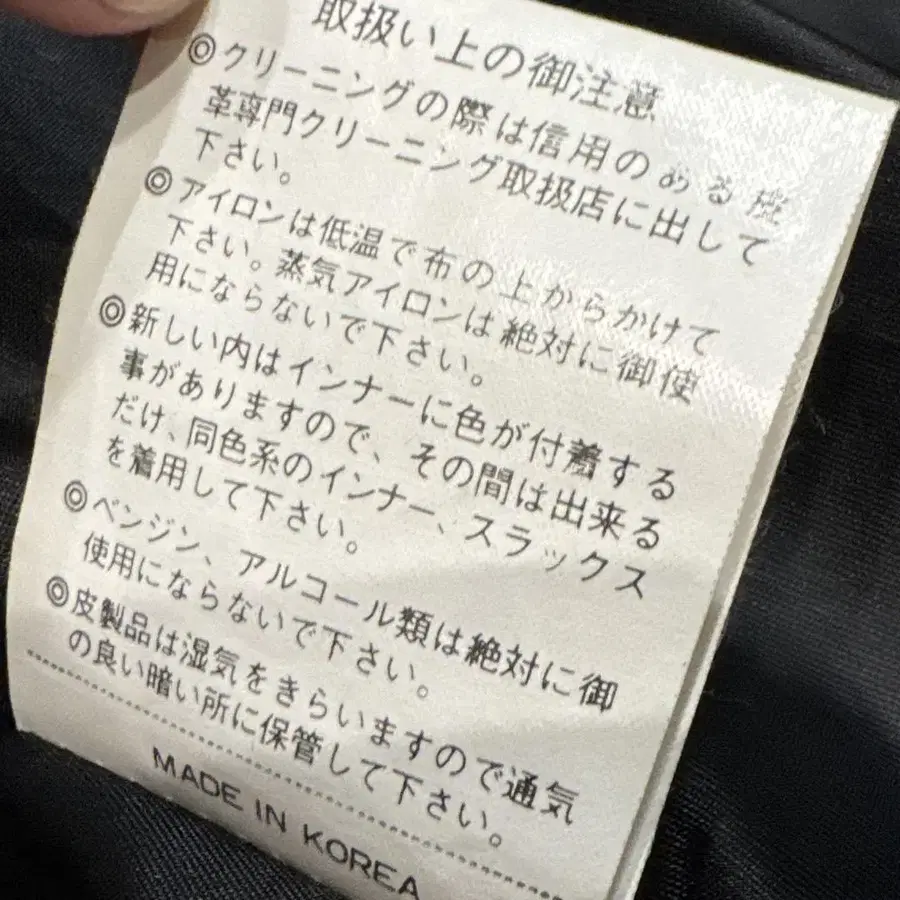 取扱い上の御注意
◎クリーニングの際は信用のある
革専門クリーニング取扱店に出して
下さい。
◎アイロンは低温で布の上からかけて
下さい。蒸気アイロンは絶対に御使
用にならないで下さい。
◎新しい内はインナーに色が付着する
事がありますので、その間は出来る
だけ、同色系のインナー、スラックス
を着用して下さい。
◎ベンジン、アルコール類は絶対に御
使用にならないで下さい。
◎皮製品は湿気をきらいますので通気
の良い暗い所に保管して下さい。
MADE IN KOREA